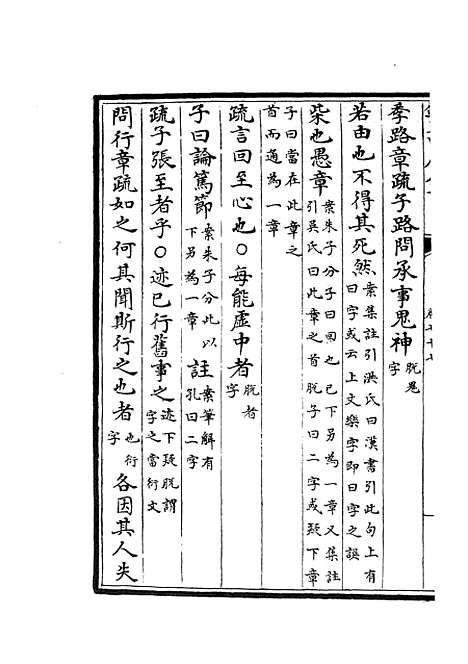 季路章疏子路問承事鬼神脫鬼字
若由也不得其死然案集註引洪氏曰漢書引此句上有曰字或云上文樂字即曰字之誤
柴也愚章案朱子分子曰回也已下另為一章又集註引吳氏曰此章之首脫子曰二字或疑下章
子曰當在此章之首而通為一章
疏言回至心也〇每能虛中者脫者字
子曰論篤節案朱子分此以下另為一章註案筆解有孔曰二字
疏子張至者乎〇迹已行舊事之迹下疑脫謂字之當衍文
問行章疏如之何其聞斯行之也者也衍字各因其人失